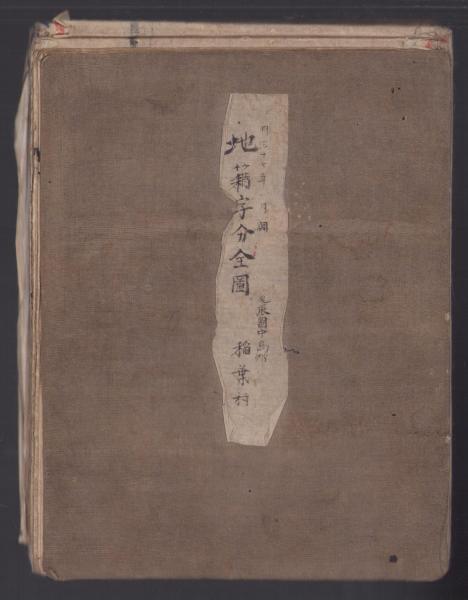 明治十七年 月調
地籍字分全圖
尾張國中島郡
稲葉村